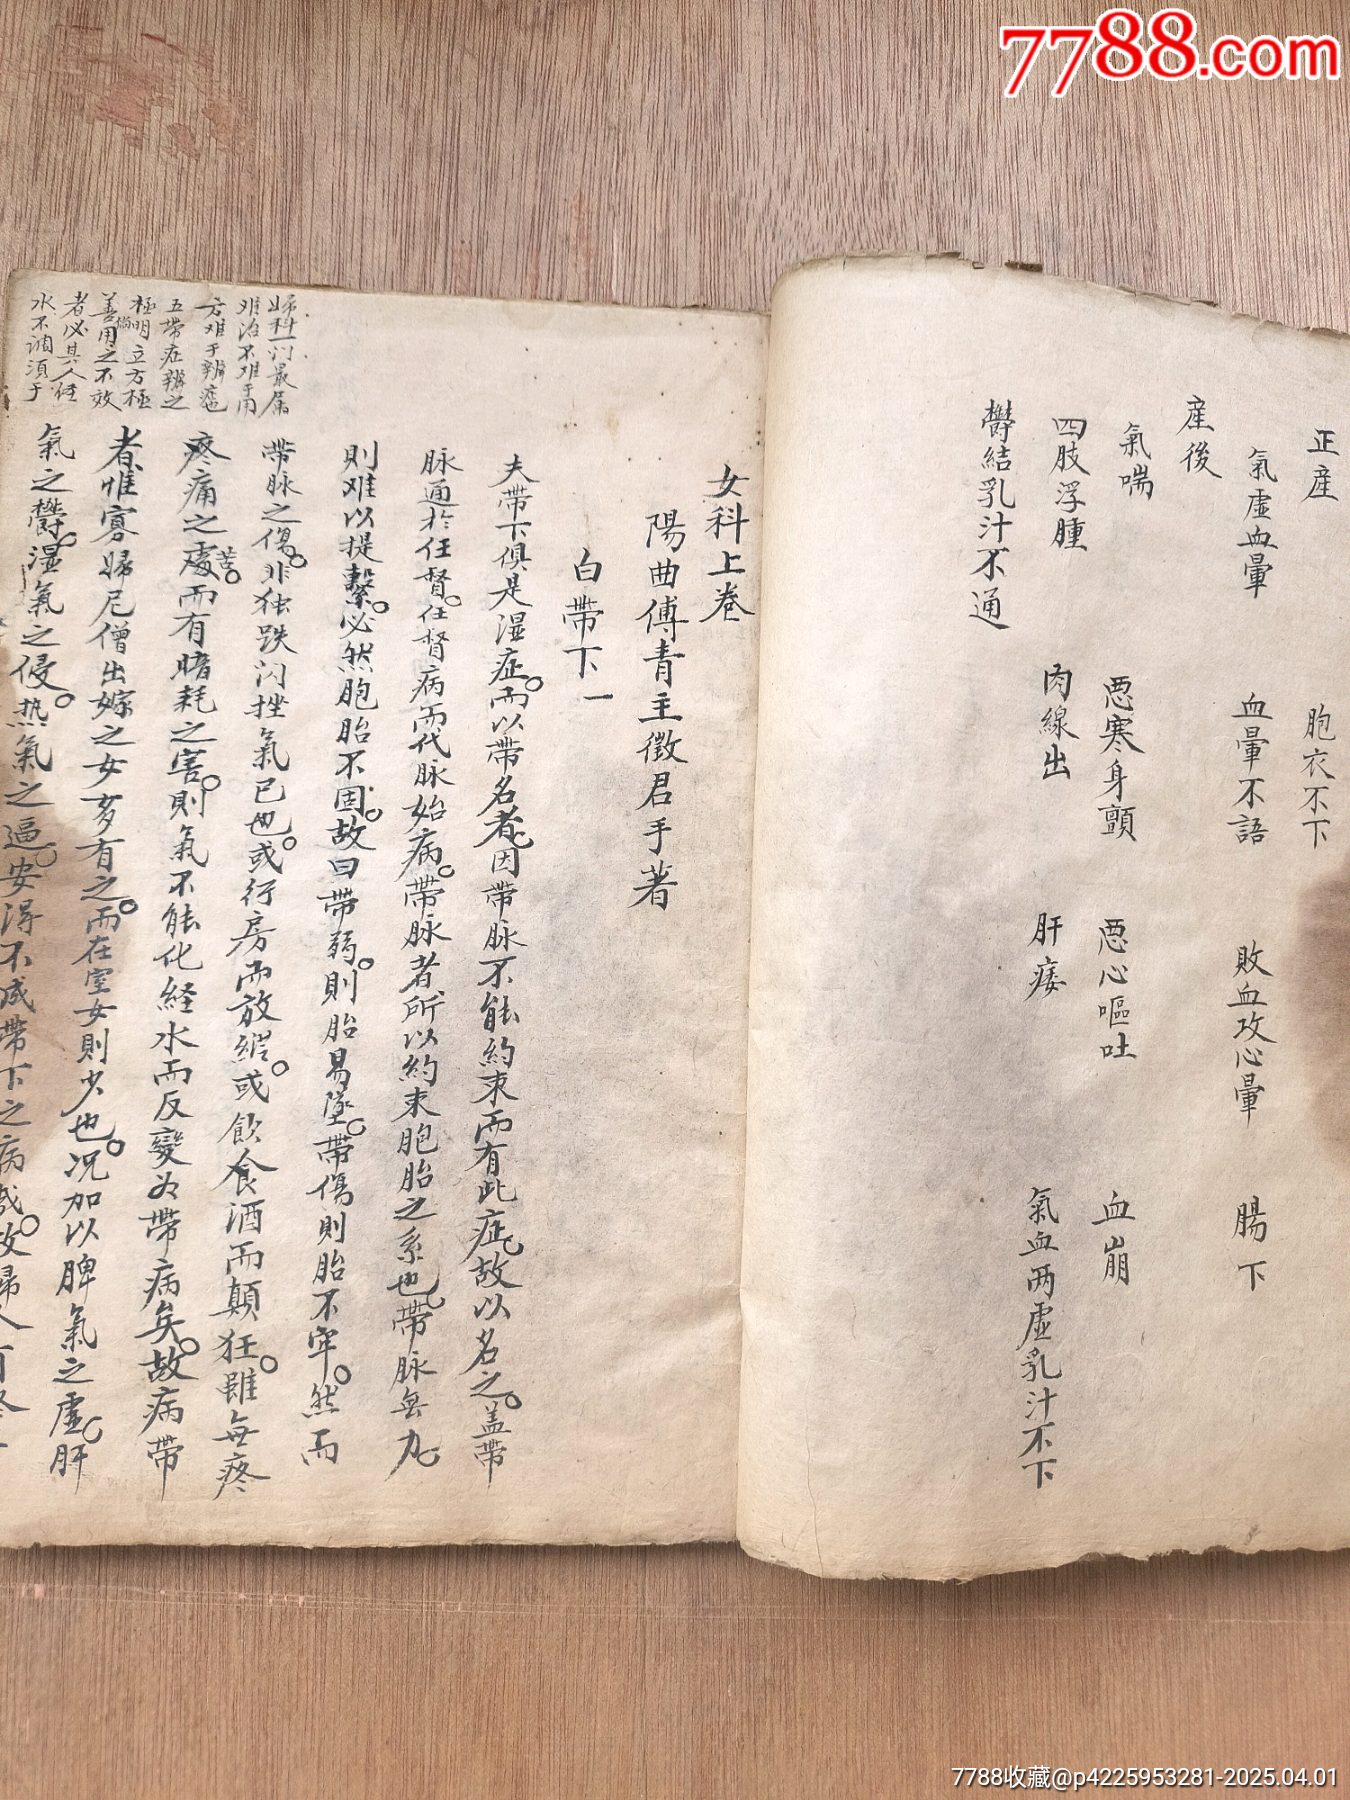 7788.com
正產
胞衣不下
氣虛血暈
血暈不語
敗血攻心暈
腸下
產後
氣喘
惡寒身顫
惡心嘔吐
血崩
四肢浮腫
肉線出
肝痿
氣血两虛乳汁不下
欝結乳汁不通
女科上卷
陽曲傅青主徵君手著
白帶下一
夫帶下俱是湿症。而以帶名者。因帶脉不能約束而有此症。故以名之。盖帶
脉通於任督。任督病而代脉始病。帶脉者所以約束胞胎之系也。帶脉無力。
則难以提繫。必然胞胎不固。故曰帶弱。則胎易墜。帶傷則胎不牢。然而
帶脉之傷。非独跌闪挫氣已也。或行房而放縱。或飲食酒而顛狂。雖無疼
疼痛之處苦。而有暗耗之害。則氣不能化経水而反變为帶病矣。故病帶
者惟寡婦尼僧出嫁之女多有之。而在室女則少也。况加以脾氣之虛。肝
氣之欝。湿氣之侵。热氣之逼。安得不成帶下之病哉。故婦人有
婦科一门最属
难治不难于用
方难于辨症
五帶症辨之
極明立方極
善倘用之不效
者必其人任
水不調須于
7788收藏@p4225953281-2025.04.01